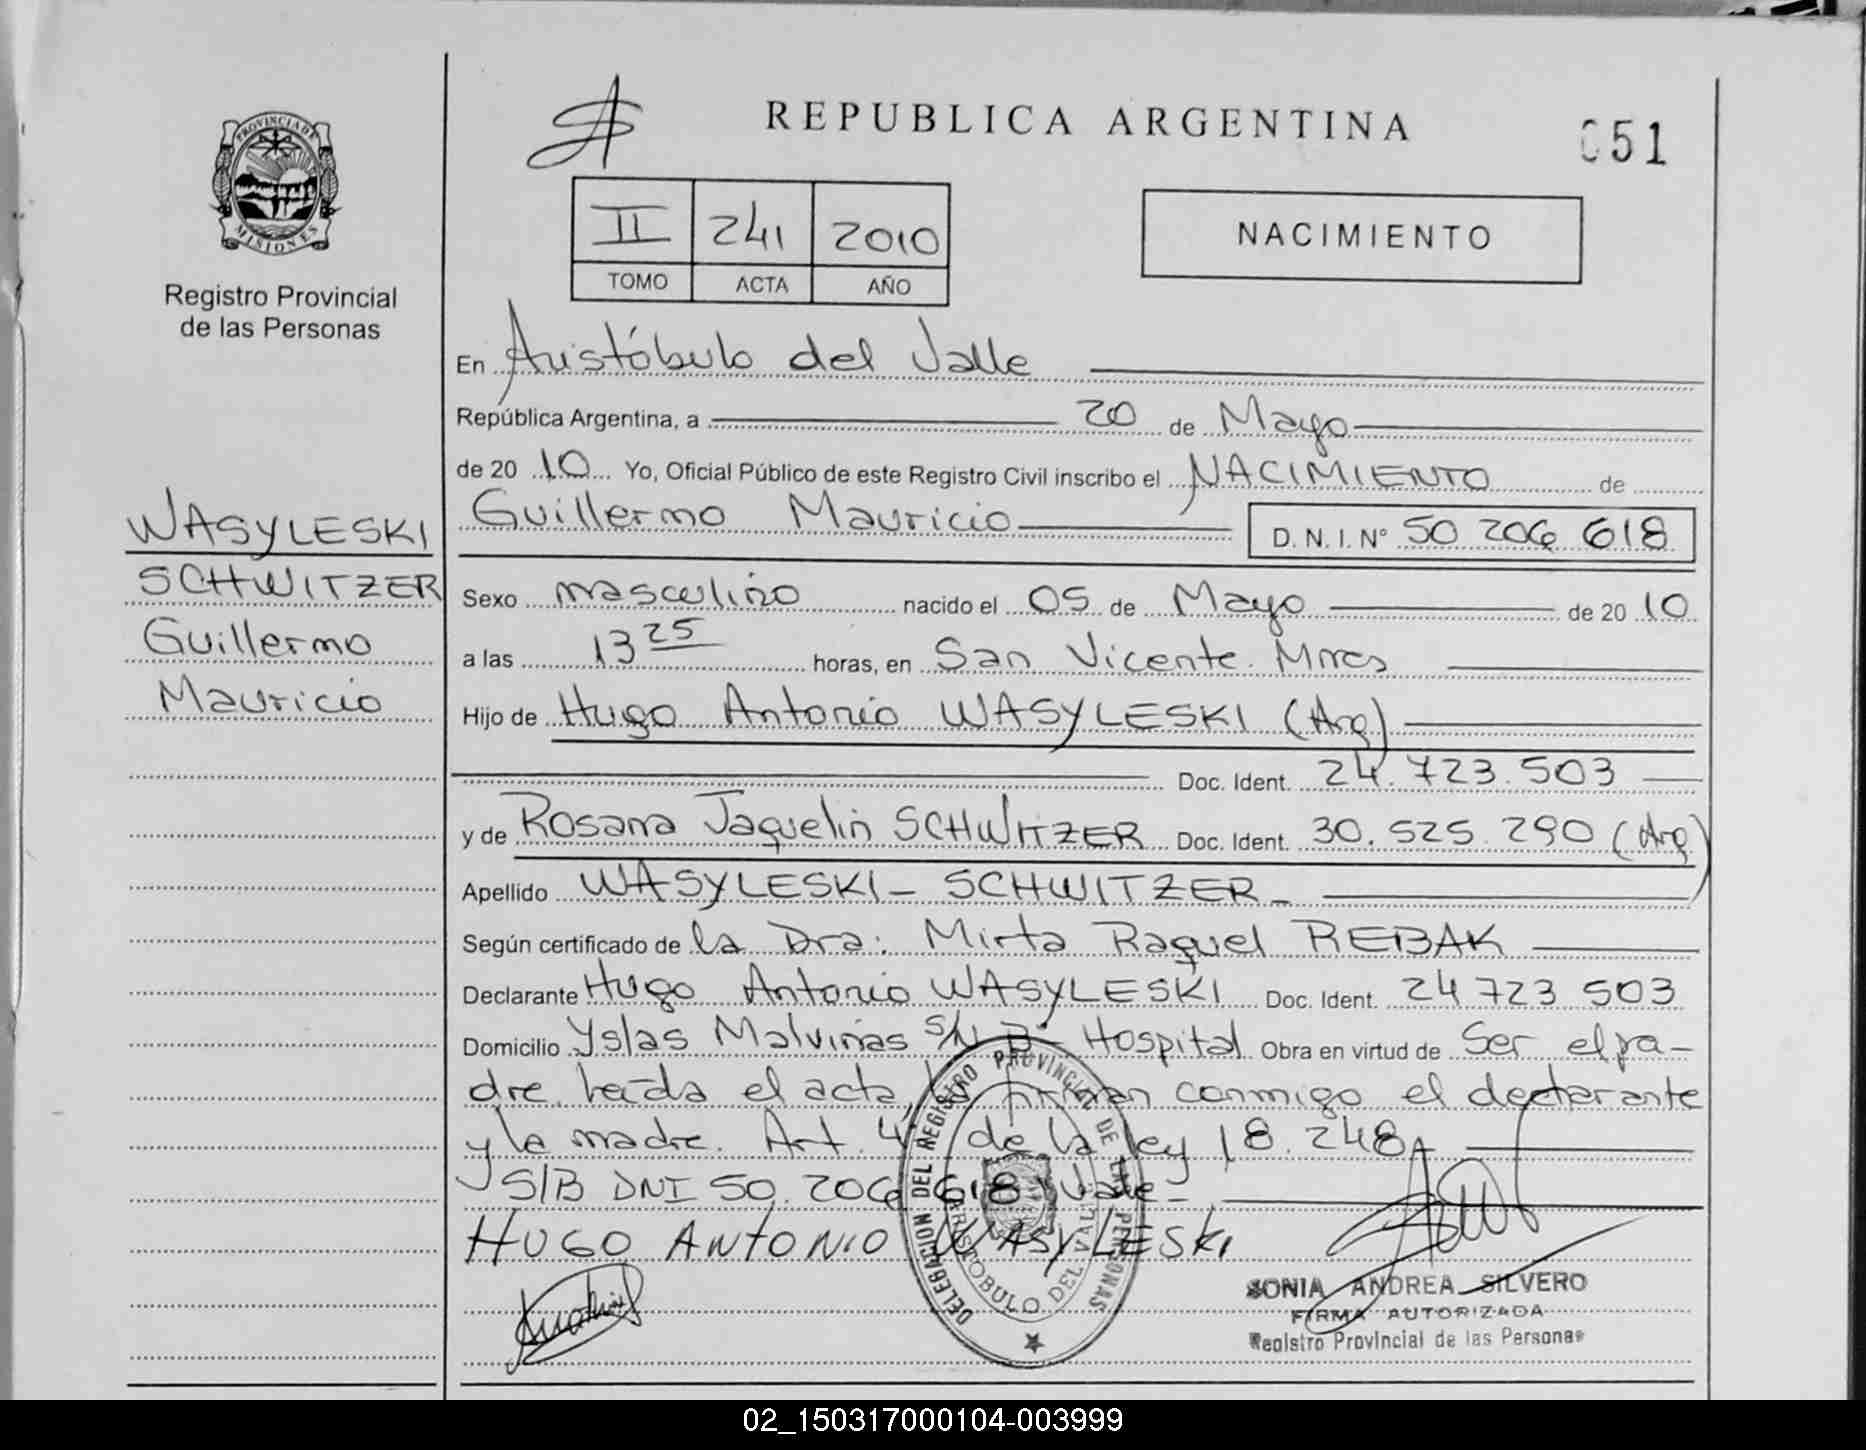 REPUBLICA ARGENTINA
051
PROVINCIA DE
MISIONES
Registro Provincial
de las Personas
II 241 2010
TOMO ACTA AÑO
NACIMIENTO
En Aristóbulo del Valle
República Argentina, a 20 de Mayo
de 20 10 Yo, Oficial Público de este Registro Civil inscribo el NACIMIENTO de
Guillermo Mauricio D.N.I. N° 50 206 618
WASYLESKI
SCHWITZER
Guillermo
Mauricio
Sexo masculino nacido el 05 de Mayo de 20 10
a las 13 25 horas, en San Vicente. Mnes
Hijo de Hugo Antonio WASYLESKI (Arg)
Doc. Ident. 24.723.503
y de Rosana Jaquelin SCHWITZER Doc. Ident. 30.525.290 (Arg)
Apellido WASYLESKI - SCHWITZER -
Según certificado de la Dra: Mirta Raquel REBAK
Declarante Hugo Antonio WASYLESKI Doc. Ident. 24 723 503
Domicilio Yslas Malvinas S/N B° Hospital Obra en virtud de Ser el pa-
dre. leída el acta, la firman conmigo el declarante
y la madre. Art. 4° de la ley 18.248
S/B DNI 50.206 618 Vale -
HUGO ANTONIO WASYLESKI
DELEGACION DEL REGISTRO PROVINCIAL DE LAS PERSONAS
ARISTOBULO DEL VALLE
SONIA ANDREA SILVERO
FIRMA AUTORIZADA
Registro Provincial de las Personas
02_150317000104-003999